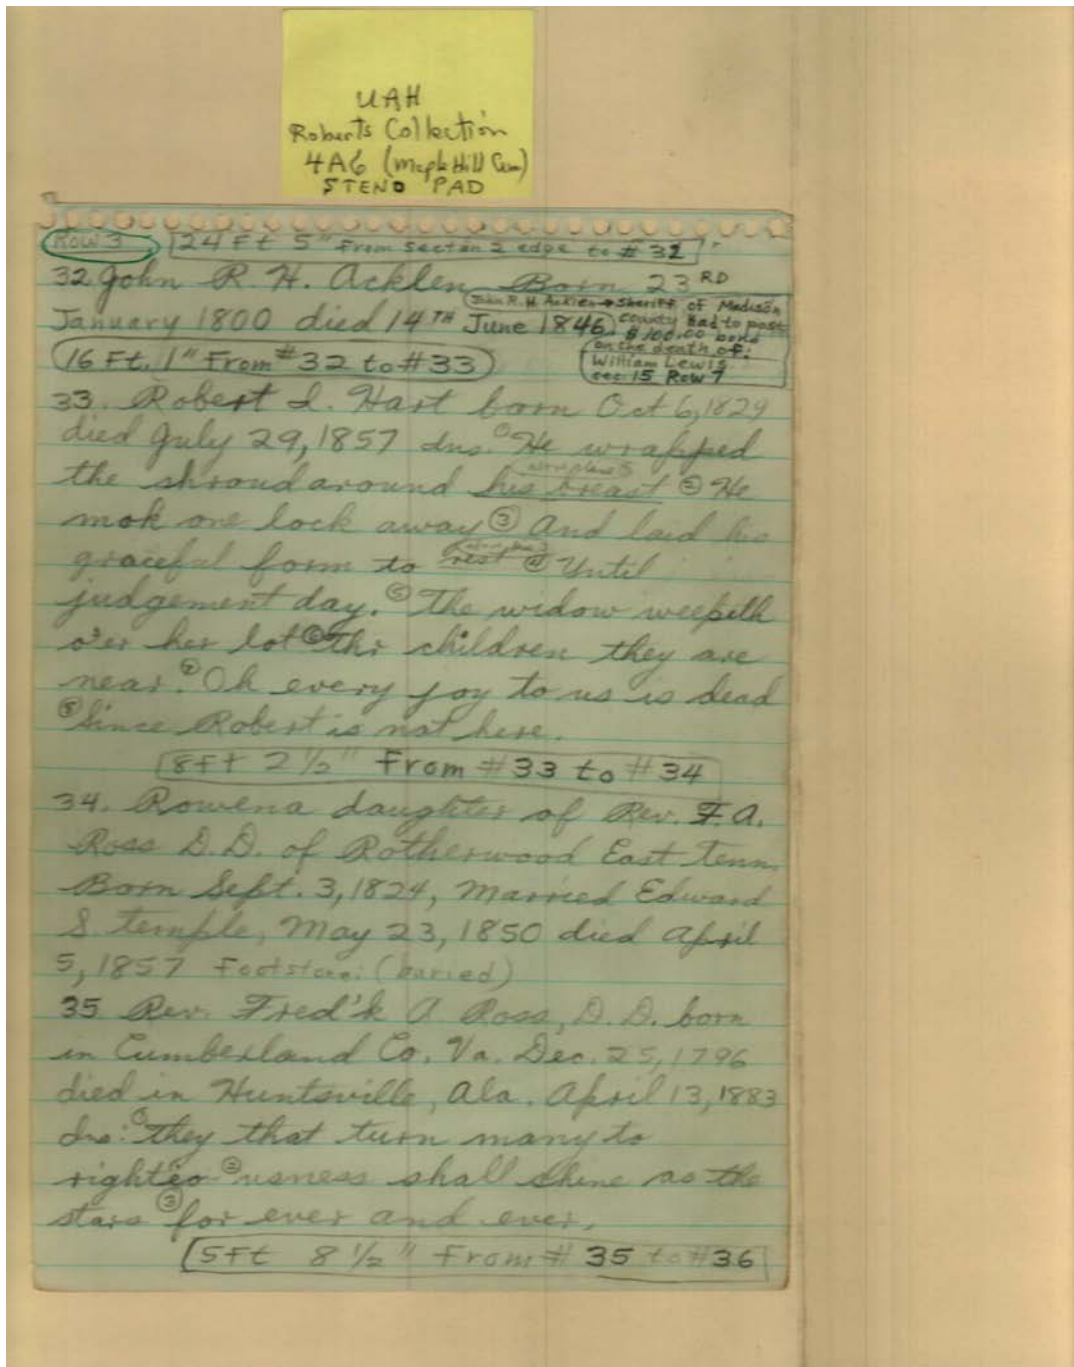 UAH
Roberts Collection
4A6 (Maple Hill Cem)
STENO PAD
Row 3
24 Ft 5" From Section 2 edge to # 32
32 John R. H. Acklen Born 23 RD
John R. H. Acklen → Sheriff of Madison
January 1800 died 14TH June 1846
county had to post
$100.00 bond
on the death of:
William Lewis
sec 15 Row 7
16 Ft. 1" From #32 to #33
33. Robert I. Hart born Oct 6, 1829
died July 29, 1857 Ins. ① He wrapped
the shroud around his breast ② He
one lock away ③ And laid his
graceful form to rest ④ Until
judgement day. ⑤ The widow weepeth
o'er her lot ⑥ The children they are
near. ⑦ Oh every joy to us is dead
⑧ Since Robert is not here.
8Ft 2 1/2" From #33 to #34
34. Rowena daughter of Rev. F. A.
Ross D.D. of Rotherwood East Tenn.
Born Sept. 3, 1824, Married Edward
S. Temple, May 23, 1850 died April
5, 1857 Footstone: (buried)
35 Rev. Fred'k A Ross, D.D. born
in Cumberland Co. Va. Dec. 25, 1796
died in Huntsville, Ala. April 13, 1883
Ins: ① They that turn many to
righteo- ② usness shall shine as the
stars ③ for ever and ever.
5Ft 8 1/2" From # 35 to #36